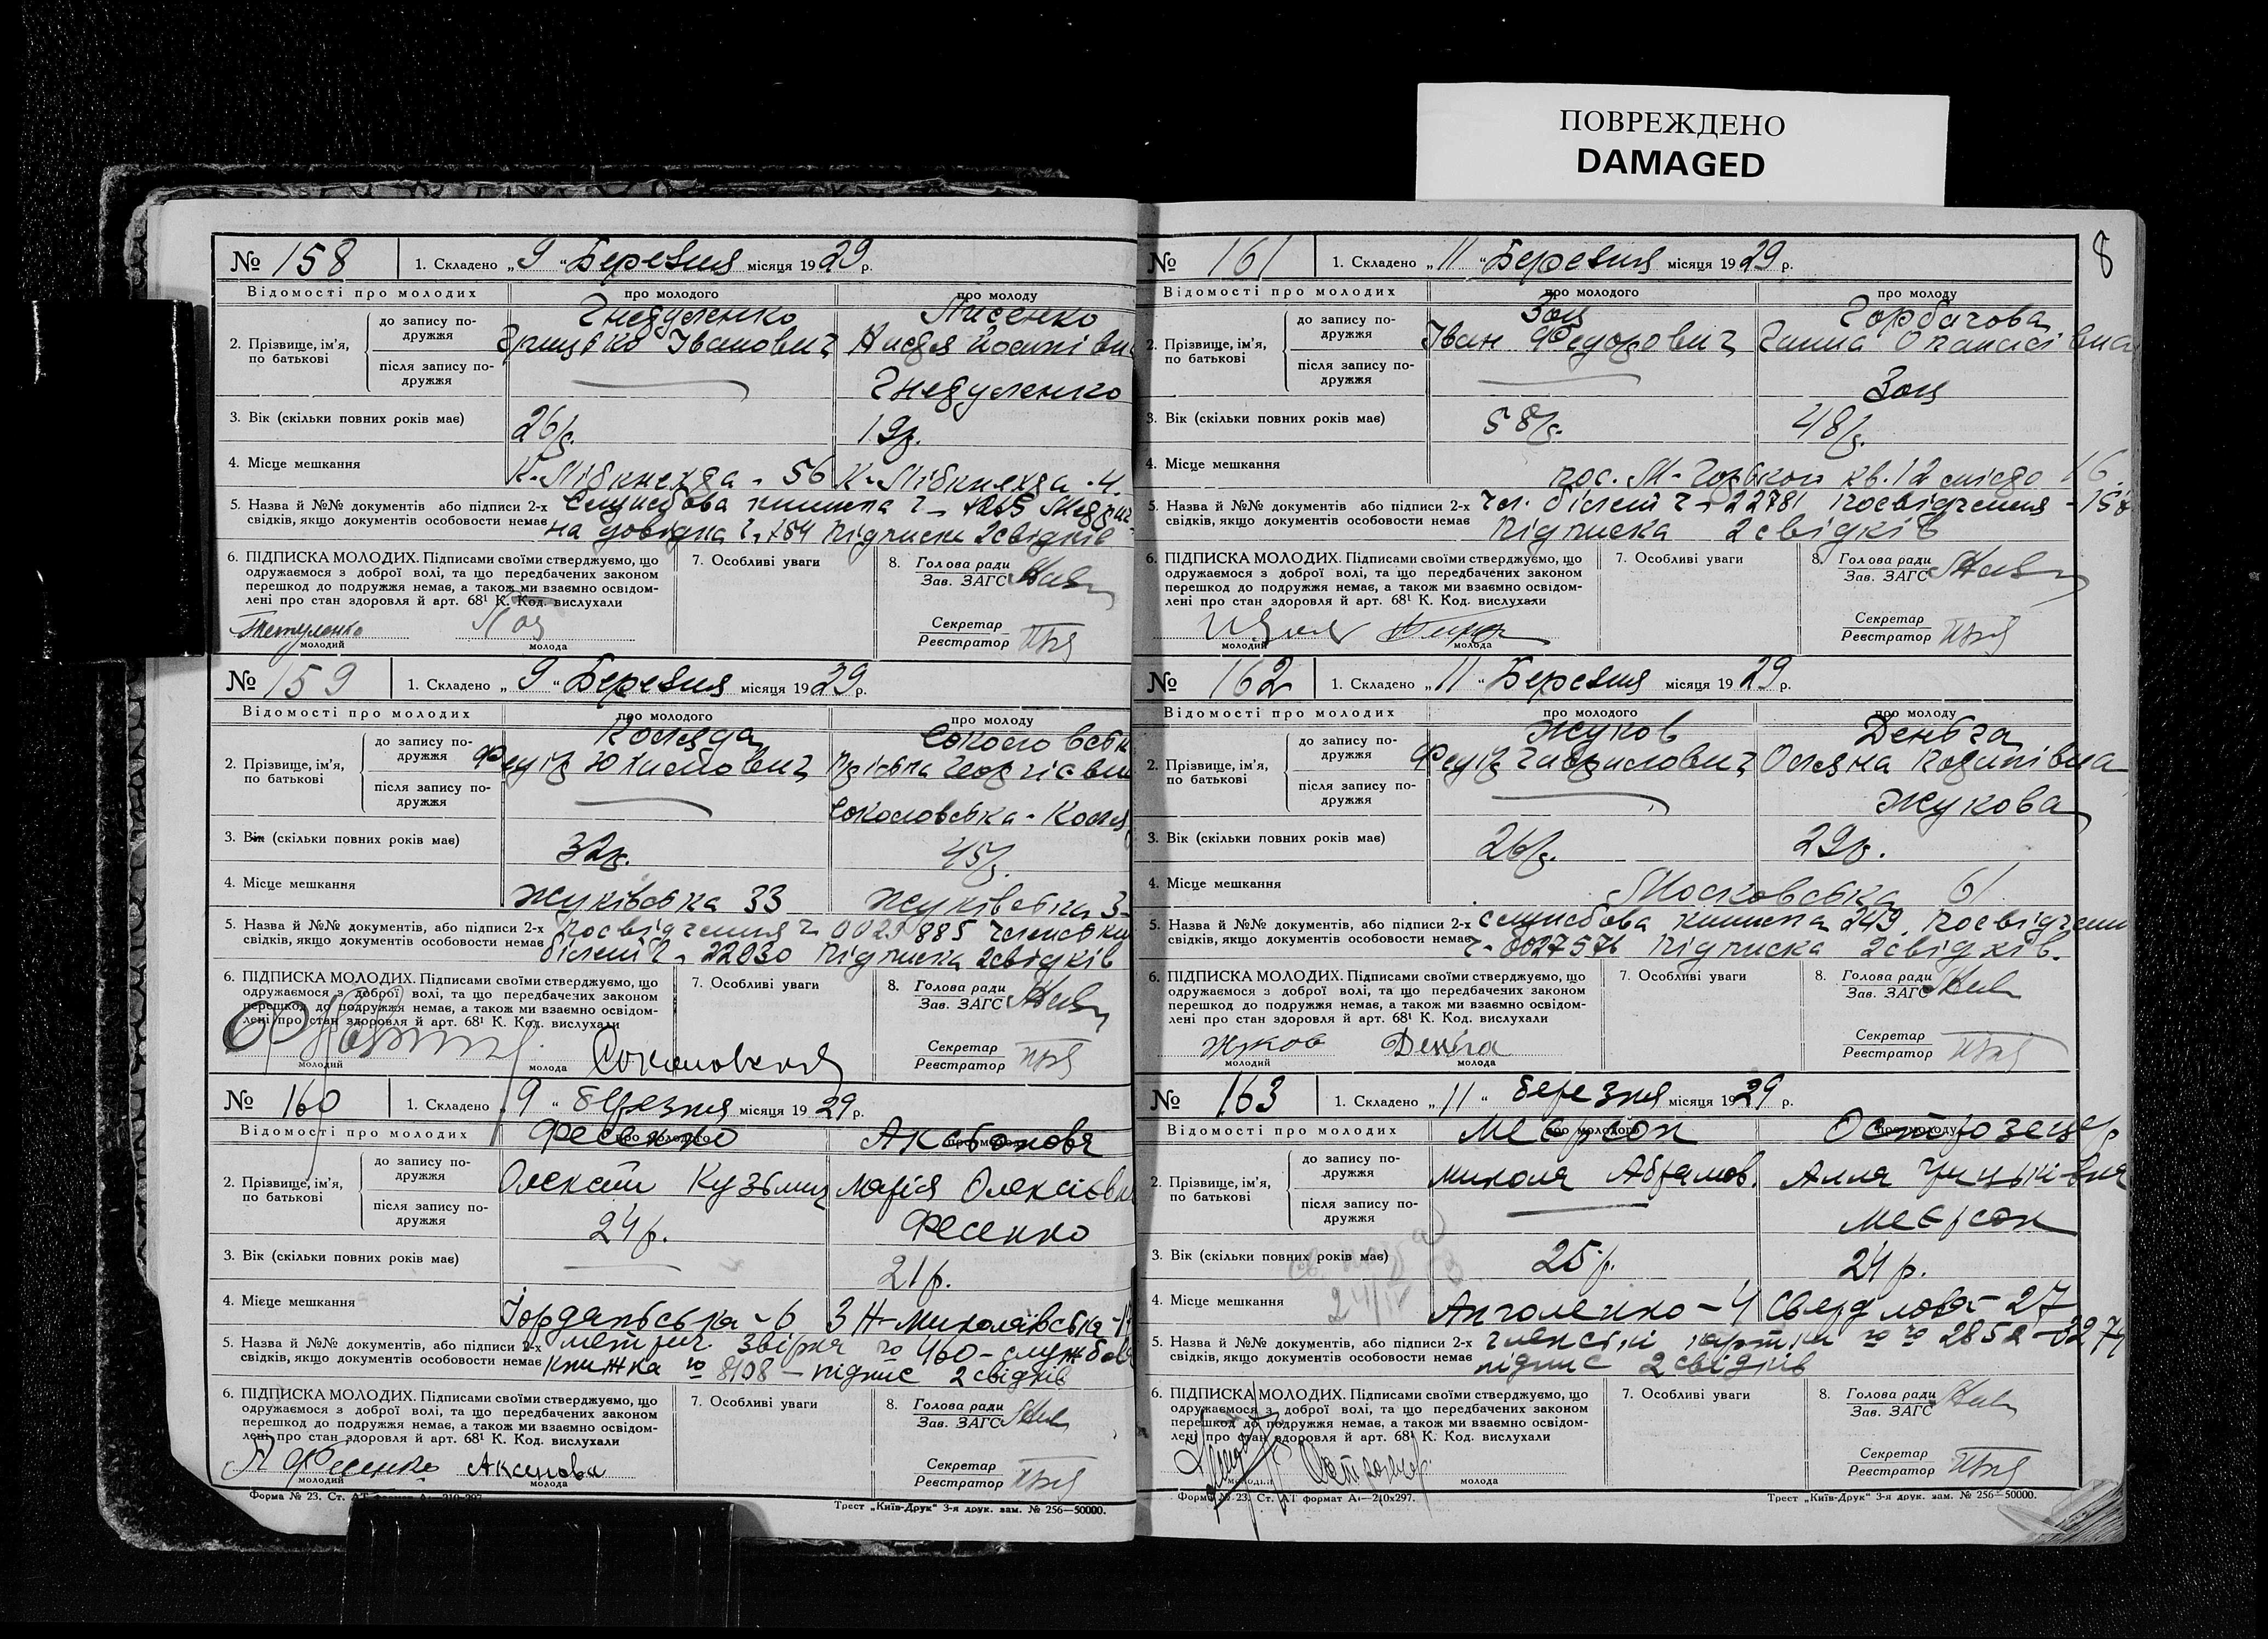 ПОВРЕЖДЕНО
DAMAGED
8
№ 158 1. Складено „9“ Березня місяця 1929 р.
Відомості про молодих про молодого про молоду
2. Прізвище, ім’я, по батькові
до запису подружжя Гнедуленко Лисенко
Грицько Іванович
після запису подружжя Гнедуленко
3. Вік (скільки повних років має) 26 р. 19 р.
4. Місце мешкання К. Лібкнехда - 56 К. Лібкнехда - 4.
5. Назва й №№ документів або підписи 2-х Службова книжка
свідків, якщо документів особовости немає на довідка ч. 784 Підписки 2 свідків
6. ПІДПИСКА МОЛОДИХ. Підписами своїми стверджуємо, що
одружаємося з доброї волі, та що передбачених законом
перешкод до подружжя немає, а також ми взаємно освідом-
лені про стан здоровля й арт. 68¹ К. Код. вислухали
молодий молода
7. Особливі уваги
8. Голова ради
Зав. ЗАГС
Секретар
Реєстратор
№ 159 1. Складено „9“ Березня місяця 1929 р.
Відомості про молодих про молодого про молоду
2. Прізвище, ім’я, по батькові
до запису подружжя Коляда Соколовськ
Федір Юхимович Георгієвн
після запису подружжя Соколовська - Коляд
3. Вік (скільки повних років має) 32 р. 45 р.
4. Місце мешкання Жуківська 33 Жуківська 3
5. Назва й №№ документів, або підписи 2-х Посвідчення ч. 0029885
свідків, якщо документів особовости немає білет ч. 22030 Підписка 2 свідків
6. ПІДПИСКА МОЛОДИХ. Підписами своїми стверджуємо, що
одружаємося з доброї волі, та що передбачених законом
перешкод до подружжя немає, а також ми взаємно освідом-
лені про стан здоровля й арт. 68¹ К. Код. вислухали
молодий молода Соколовская
7. Особливі уваги
8. Голова ради
Зав. ЗАГС
Секретар
Реєстратор
№ 160 1. Складено „9“ березня місяця 1929 р.
Відомості про молодих про молодого про молоду
2. Прізвище, ім’я, по батькові
до запису подружжя Фесенко Аксьонова
Кузьмич Марія Олексієвн
після запису подружжя Фесенко
3. Вік (скільки повних років має) 24 р. 21 р.
4. Місце мешкання Іорданська - 6 3 Н-Миколаївська
5. Назва й №№ документів, або підписи 2-х метрич. звірка № 460 - службов
свідків, якщо документів особовости немає книжка № 8108 - підпис 2 свідків
6. ПІДПИСКА МОЛОДИХ. Підписами своїми стверджуємо, що
одружаємося з доброї волі, та що передбачених законом
перешкод до подружжя немає, а також ми взаємно освідом-
лені про стан здоровля й арт. 68¹ К. Код. вислухали
Фесенко Аксенова
молодий молода
7. Особливі уваги
8. Голова ради
Зав. ЗАГС
Секретар
Реєстратор
Форма № 23. Ст. АТ формат А₁—210х297.
Трест „Київ-Друк“ 3-я друк. зам. № 256—50000.
№ 161 1. Складено „11“ Березня місяця 1929 р.
Відомості про молодих про молодого про молоду
2. Прізвище, ім’я, по батькові
до запису подружжя Зоц Горбачова
Іван Федорович Ганна Опанасівна
після запису подружжя Зоц
3. Вік (скільки повних років має) 58 р. 48 р.
4. Місце мешкання пос. М-Горького кв. 12 16
5. Назва й №№ документів або підписи 2-х чл. білет ч - 22781 посвідчення
свідків, якщо документів особовости немає Підписка 2 свідків
6. ПІДПИСКА МОЛОДИХ. Підписами своїми стверджуємо, що
одружаємося з доброї волі, та що передбачених законом
перешкод до подружжя немає, а також ми взаємно освідом-
лені про стан здоровля й арт. 68¹ К. Код. вислухали
молодий молода
7. Особливі уваги
8. Голова ради
Зав. ЗАГС
Секретар
Реєстратор
№ 162 1. Складено „11“ Березня місяця 1929 р.
Відомості про молодих про молодого про молоду
2. Прізвище, ім’я, по батькові
до запису подружжя Жуков Деньга
Федір Гаврилович
після запису подружжя Жукова
3. Вік (скільки повних років має) 26 р. 29 р.
4. Місце мешкання Московська 61
5. Назва й №№ документів, або підписи 2-х службова книжка 249. Посвідченн
свідків, якщо документів особовости немає Підписка 2 свідків.
6. ПІДПИСКА МОЛОДИХ. Підписами своїми стверджуємо, що
одружаємося з доброї волі, та що передбачених законом
перешкод до подружжя немає, а також ми взаємно освідом-
лені про стан здоровля й арт. 68¹ К. Код. вислухали
Жуков Деньга
молодий молода
7. Особливі уваги
8. Голова ради
Зав. ЗАГС
Секретар
Реєстратор
№ 163 1. Складено „11“ березня місяця 1929 р.
Відомості про молодих про молодого про молоду
2. Прізвище, ім’я, по батькові
до запису подружжя Меєрсон Острозецер
Микола Абрамов. Алла Грицьківна
після запису подружжя Меєрсон
3. Вік (скільки повних років має) 25 р. 24 р.
4. Місце мешкання Анголенко - 4 Свердлова - 27
5. Назва й №№ документів, або підписи 2-х членські картки №№ 2852 - 3274
свідків, якщо документів особовости немає підпис 2 свідків
6. ПІДПИСКА МОЛОДИХ. Підписами своїми стверджуємо, що
одружаємося з доброї волі, та що передбачених законом
перешкод до подружжя немає, а також ми взаємно освідом-
лені про стан здоровля й арт. 68¹ К. Код. вислухали
молода
7. Особливі уваги
8. Голова ради
Зав. ЗАГС
Секретар
Реєстратор
Форма № 23. Ст. АТ формат А₁—210х297.
Трест „Київ-Друк“ 3-я друк. зам. № 256—50000.